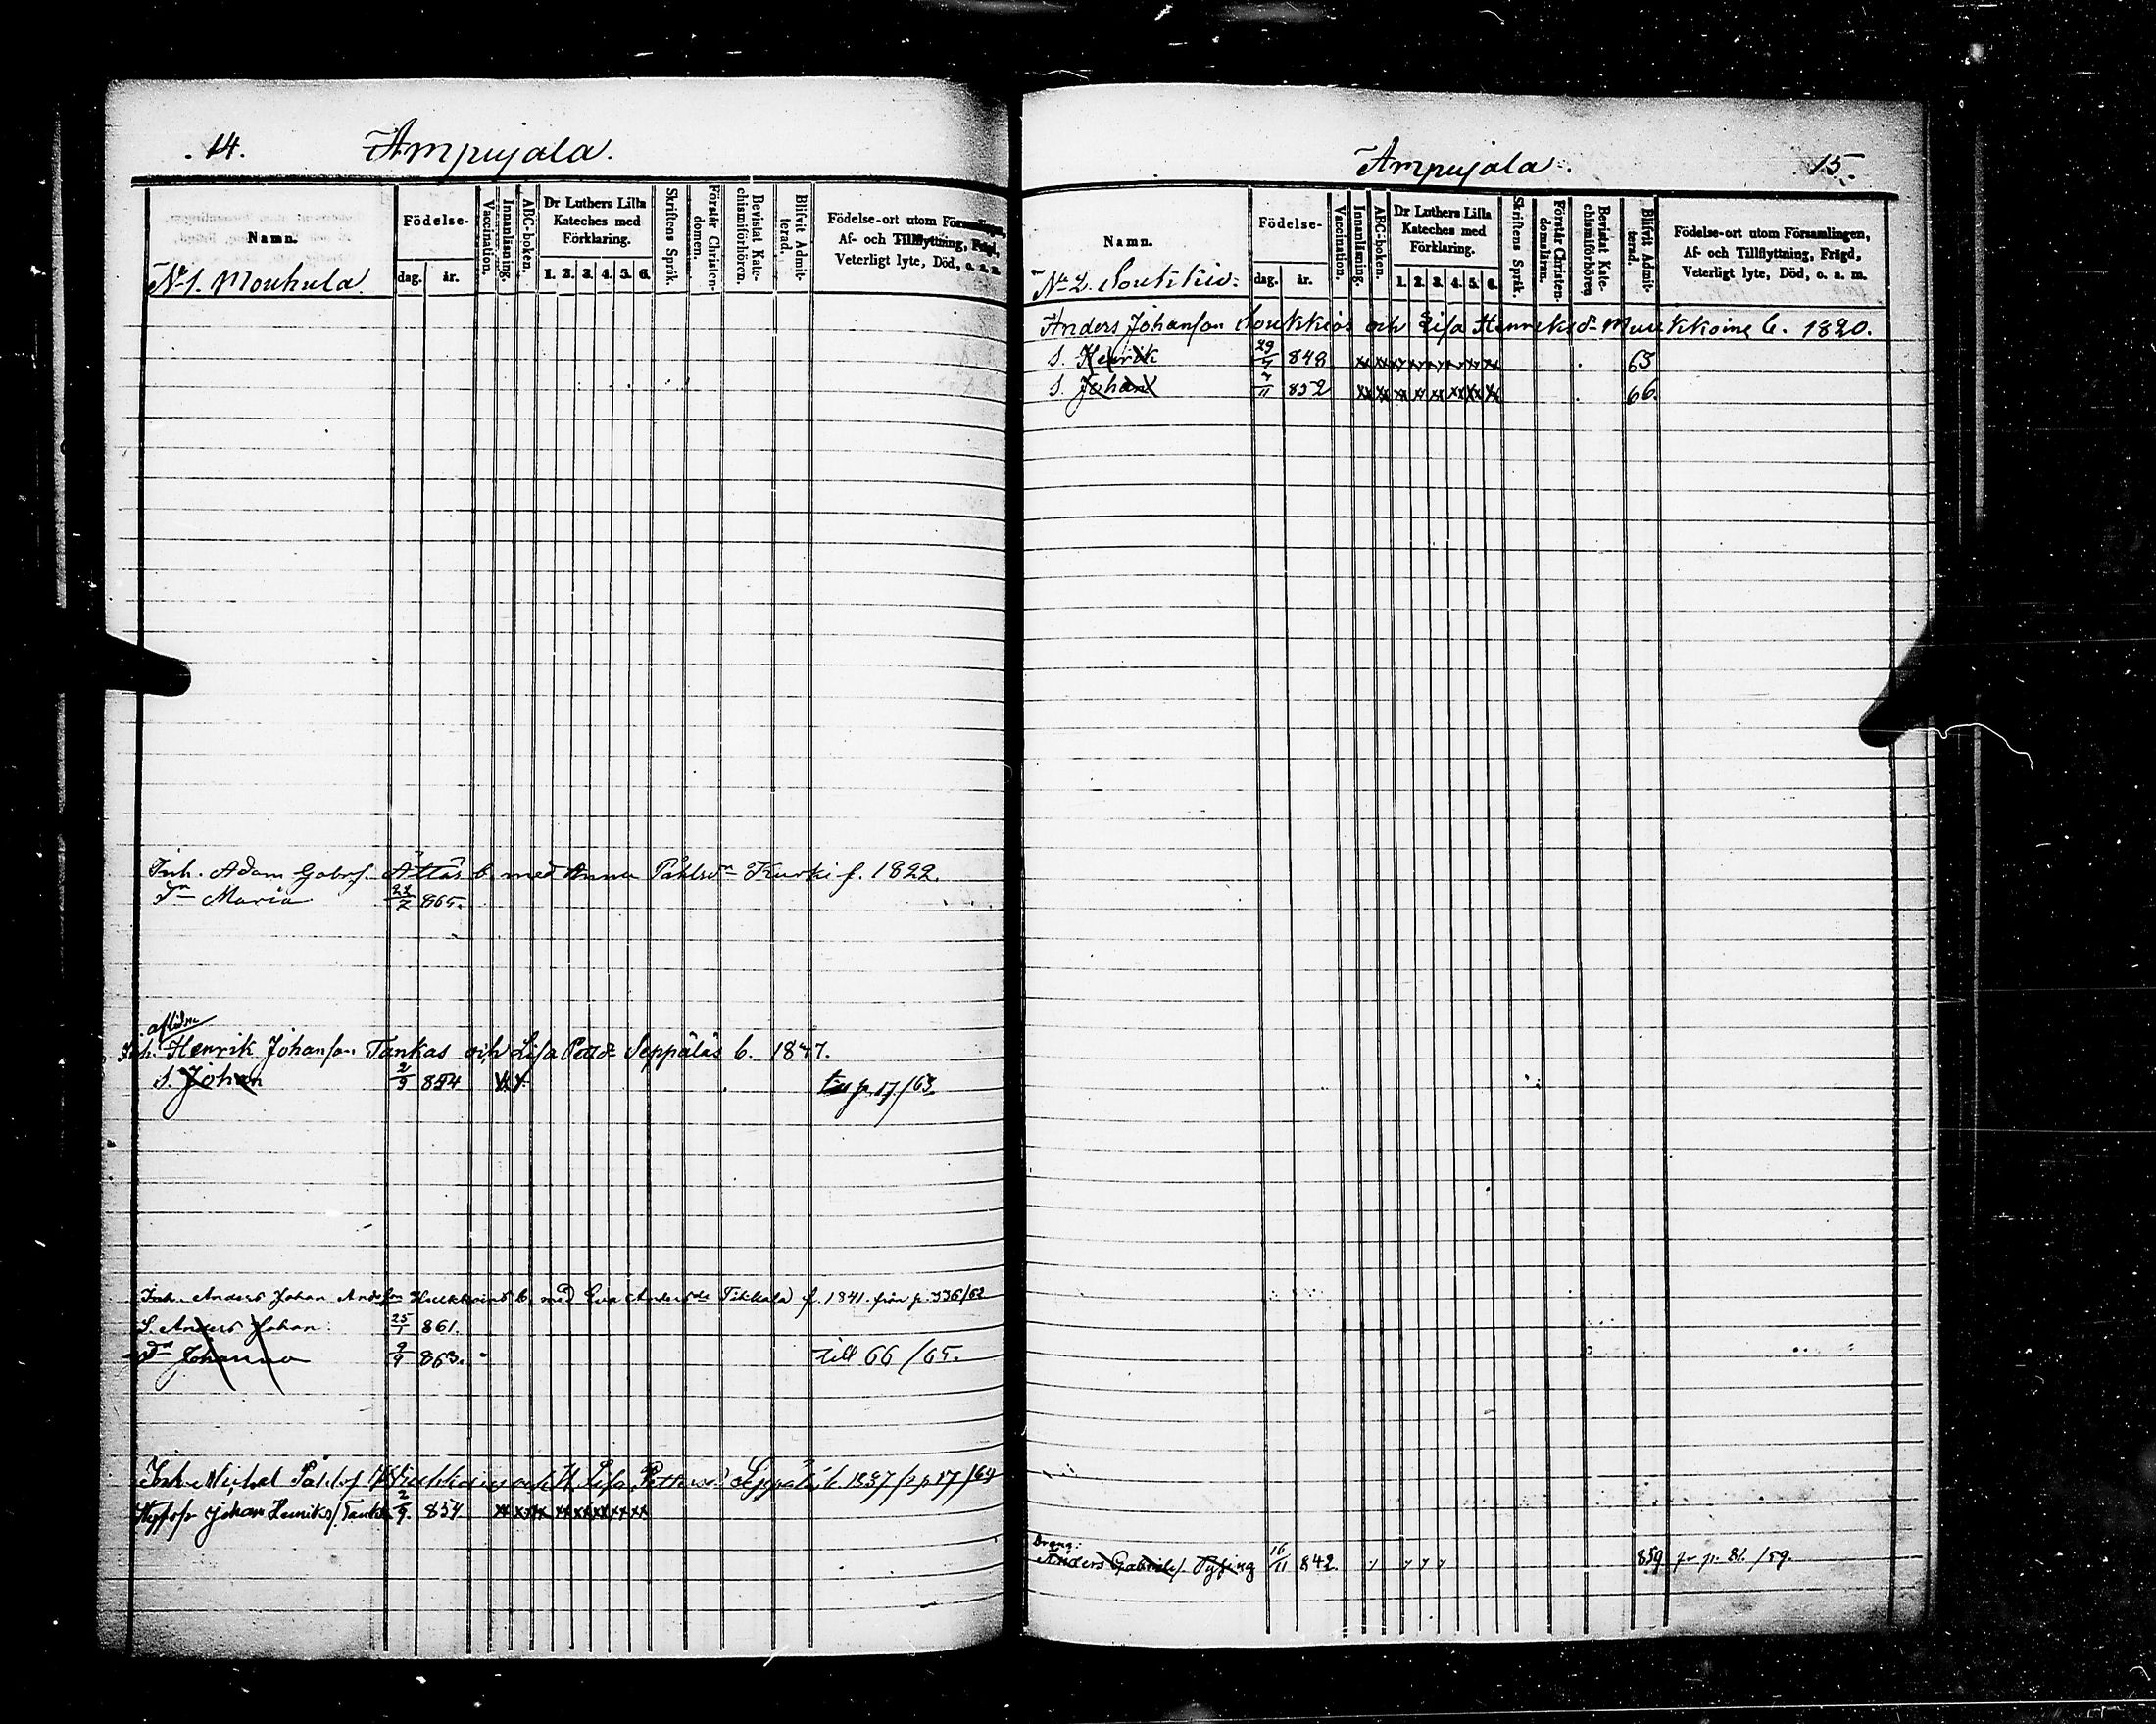 14. Ampujala.
Namn.
Födelse-
dag. år.
Vaccination.
Innanläsning.
ABC-boken.
Dr Luthers Lilla
Kateches med
Förklaring.
1. 2. 3. 4. 5. 6.
Skriftens Språk.
Förstår Christen-
domen.
Bevistat Kate-
chismiförhören.
Blifvit Admit-
terad.
Födelse-ort utom Församlingen,
Af- och Tillflyttning, Frägd,
Veterligt lyte, Död, o. a. m.
No 1. Mouhula
Inh. Adam Gabrs. Attas b. med Anna Påhlsdr Kurki f. 1822.
Dr Maria 865.
aflidne
Inh. Henrik Johansson Tankas och Lisa Petd. Seppäläs b. 1847.
S. Johan 2/9 854 p. 17/63.
Inh. Anders Johan b. med Eva Andersdr Tikkala f. 1841. från p. 336/62
S. Anders Johan 25/1 861.
Dr Johanna 9/9 863. till 66/65.
Inh. Michel och Lisa Seppälä b. 1837 p 17/64
Johan Henriks. Tankas 2/9. 854.
Ampujala. 15.
Namn.
Födelse-
dag. år.
Vaccination.
Innanläsning.
ABC-boken.
Dr Luthers Lilla
Kateches med
Förklaring.
1. 2. 3. 4. 5. 6.
Skriftens Språk.
Förstår Christen-
domsläran.
Bevistat Kate-
chismiförhören
Blifvit Admit-
terad.
Födelse-ort utom Församlingen,
Af- och Tillflyttning, Frägd,
Veterligt lyte, Död, o. a. m.
No 2. Soukkio.
Anders Johansson Soukkios och Lisa Henriksdr b. 1820.
S. Henrik 848 63
S. Johan 7/11 852 66.
Dräng:
Anders Gabriels. 16/11 842. 859. p. 81./59.